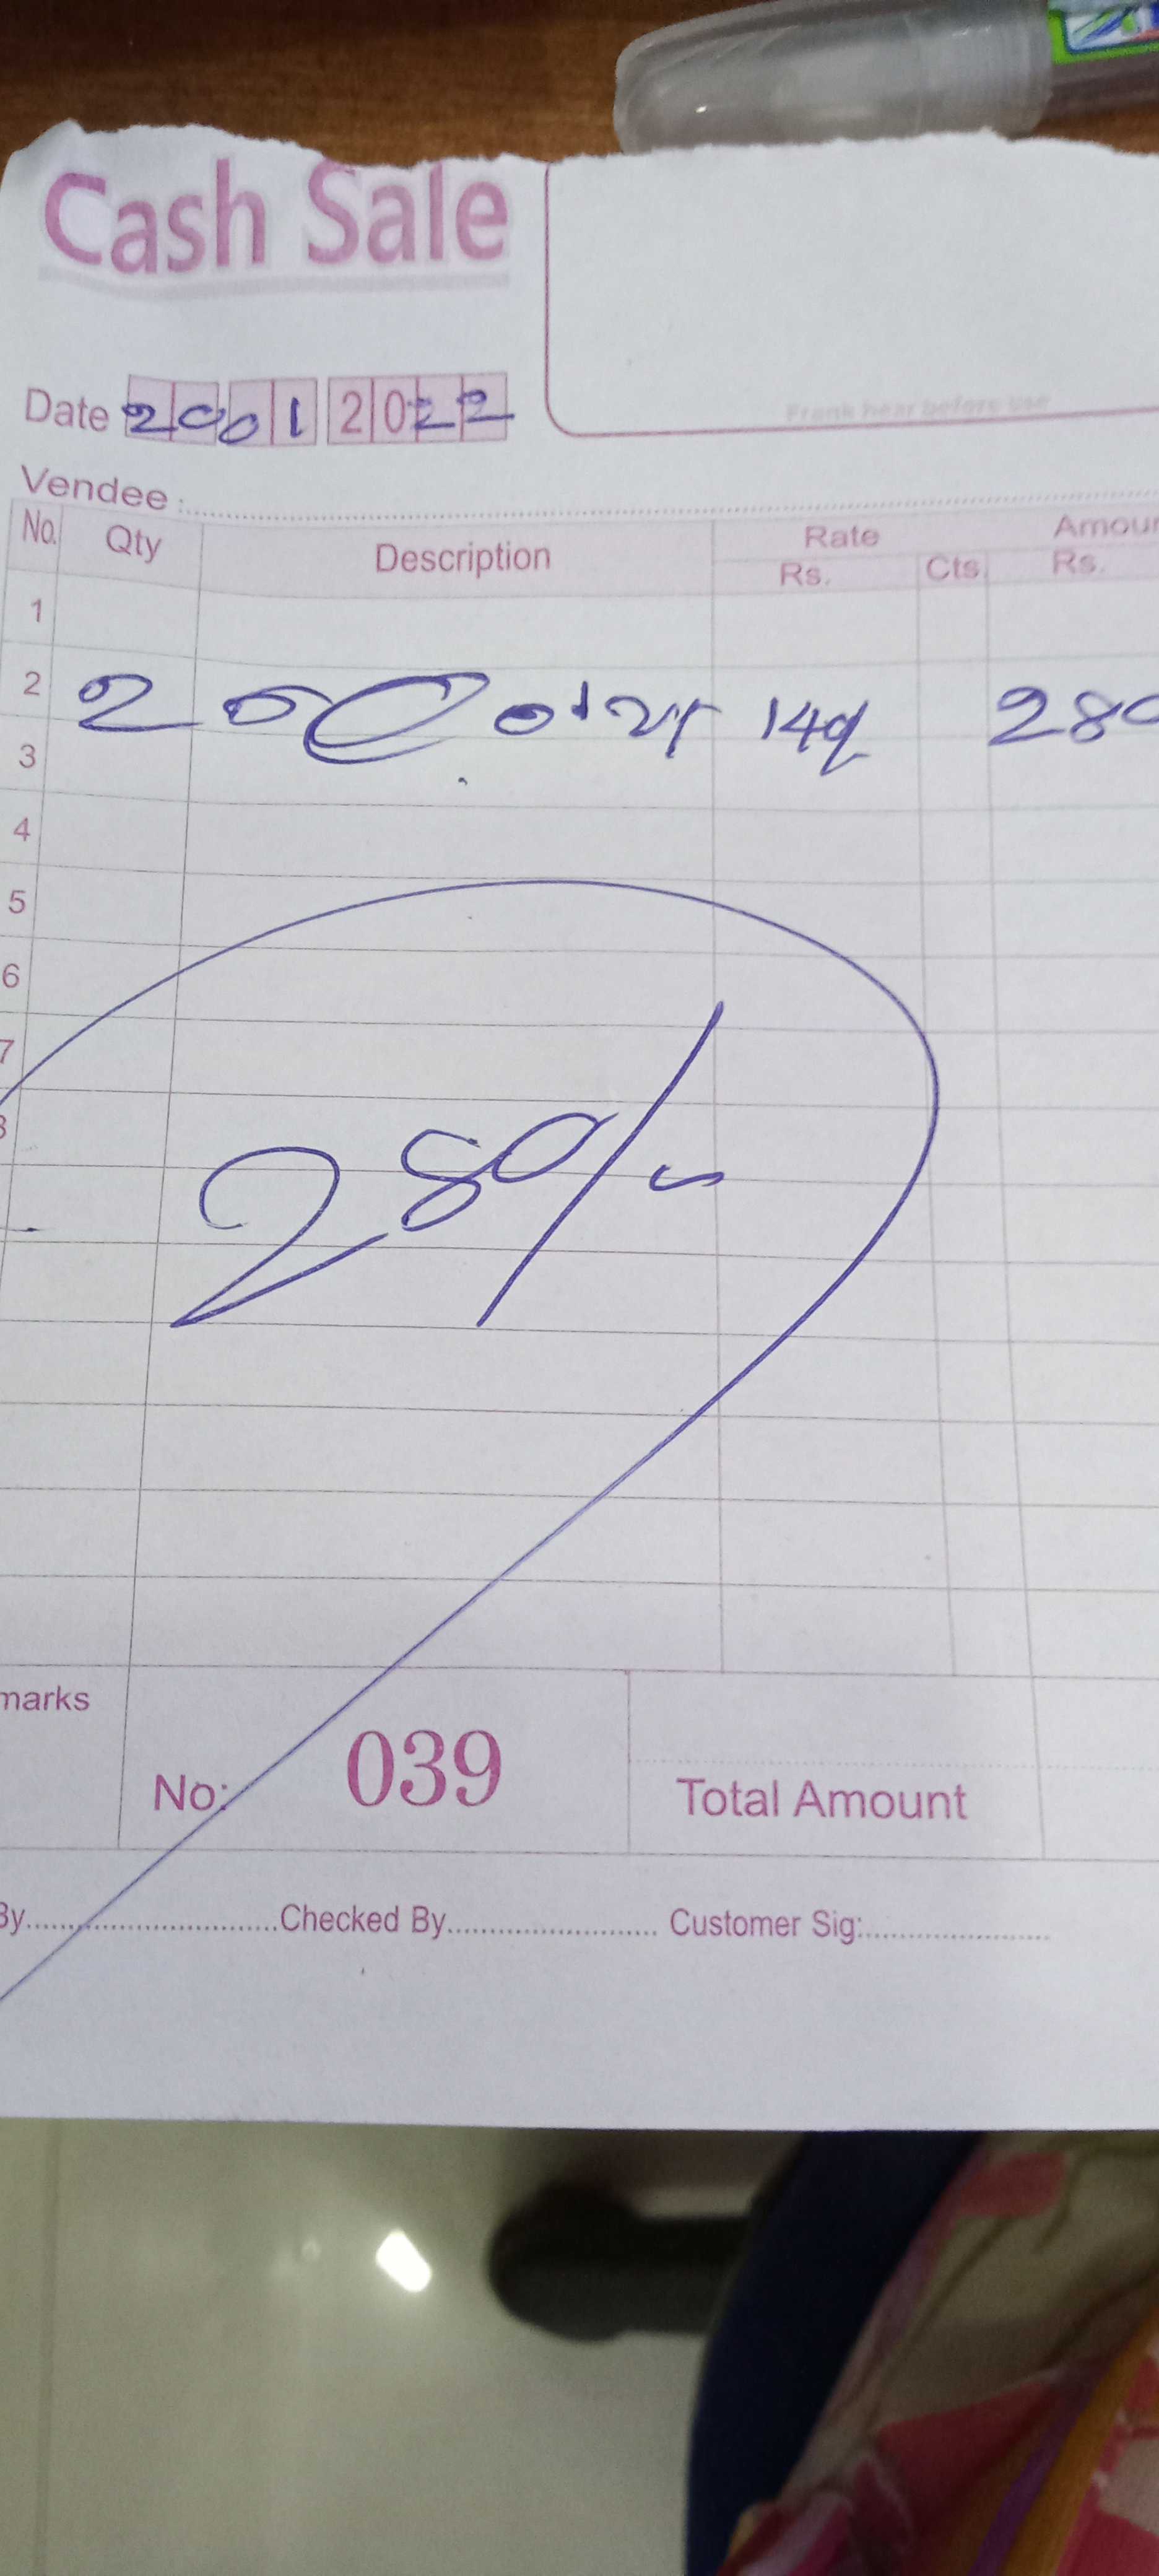 Cash Sale
Frank hear before use
Date 20 01 2022
Vendee :
No. Qty Description Rate Amour
Rs. Cts. Rs.
1
2 2 140 280
3
4
5
6
7
8
280/-
marks
No: 039 Total Amount
By Checked By Customer Sig: